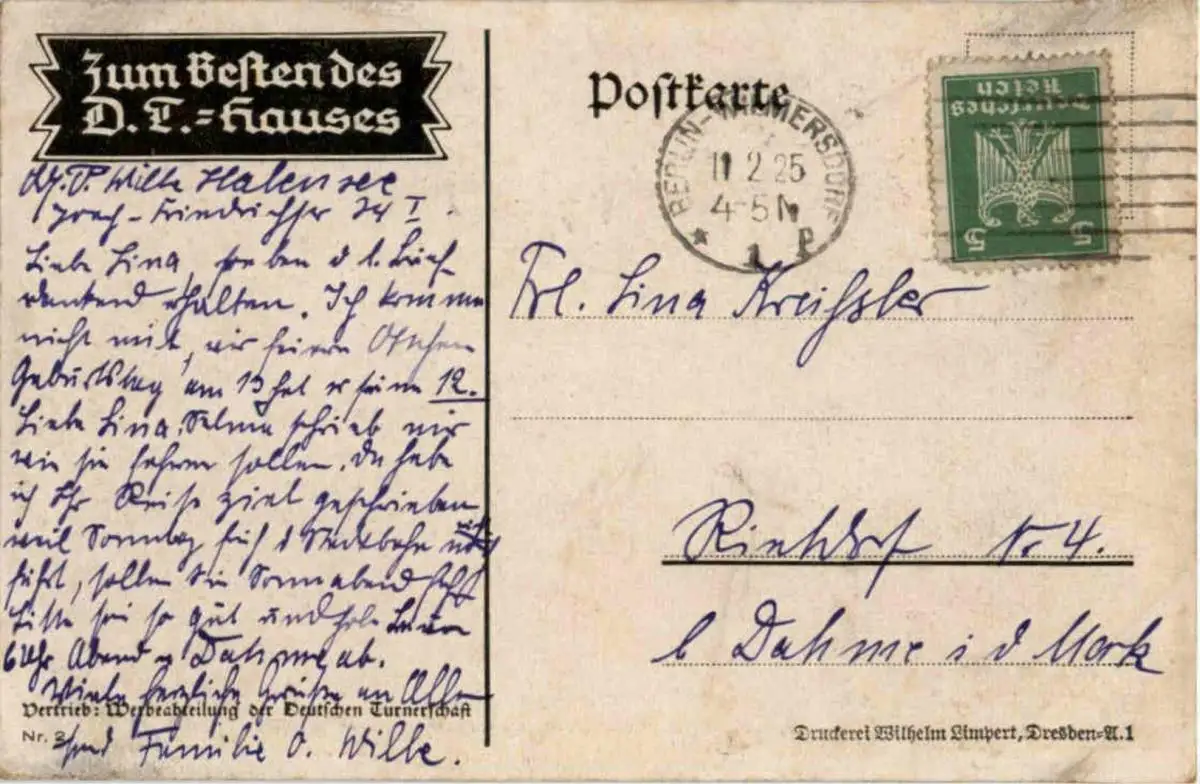 Zum Besten des
D. T.=Hauses
Postkarte
BERLIN-WILMERSDORF
11 2 25
4-5 N
* 1 P
Deutsches
Reich
5 5
O. Wilke Halensee
Friedrichstr 34 I
Liebe Lina, soeben d l.
dankend erhalten. Ich komme
nicht mit, wir feiern
Geburtstag am 13 hat er seine 12.
Liebe Lina, Selma schrieb mir
wie sie fahren sollen. Da habe
ich Ihr Reise ziel geschrieben
weil Sonntag früh d Stadtbahn nicht
führt, sollen Sie Sonnabend
bitte sei so gut und hole
6 Uhr Abend v Dahme ab.
Viele herzliche Grüße an Alle
send Familie O. Wilke.
Vertrieb: Werbeabteilung der Deutschen Turnerschaft
Nr. 2
Frl. Lina Kreissler
Rietdorf No 4.
b Dahme i d Mark
Druckerei Wilhelm Limpert, Dresden=A. 1